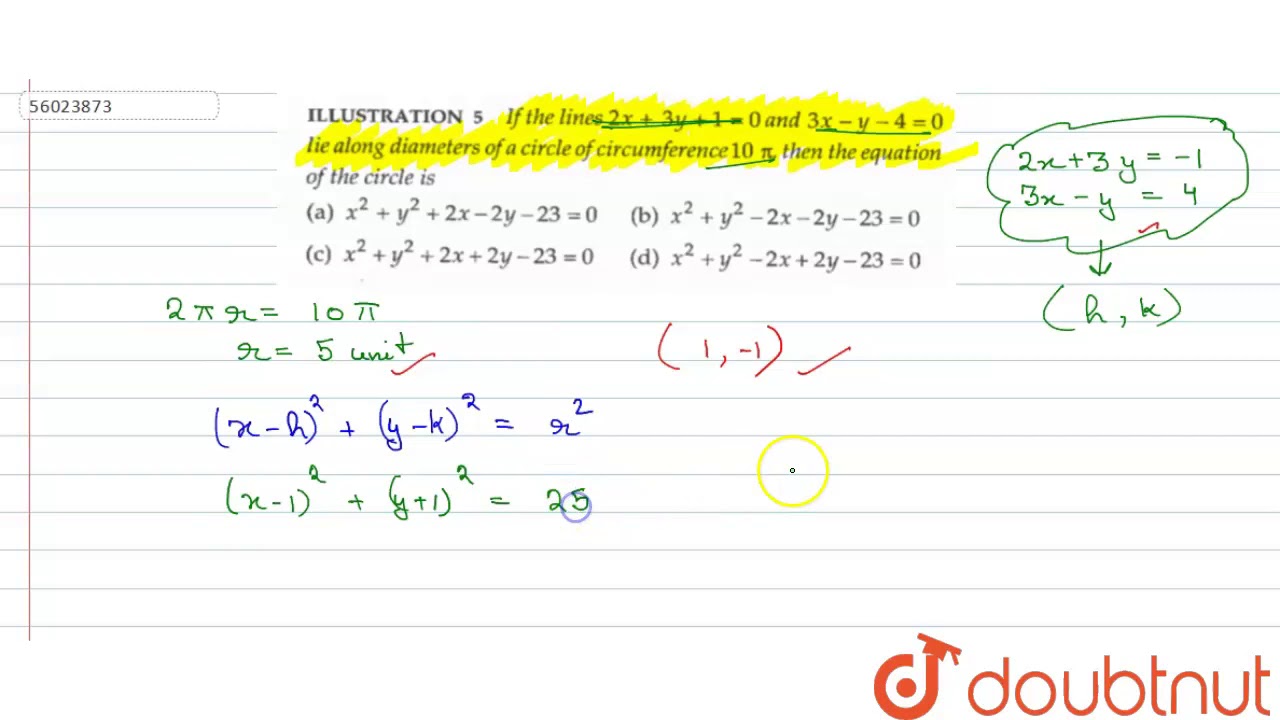 56023873
ILLUSTRATION 5 If the lines 2x + 3y + 1 = 0 and 3x − y − 4 = 0
lie along diameters of a circle of circumference 10 π, then the equation
of the circle is
(a) x² + y² + 2x − 2y − 23 = 0 (b) x² + y² − 2x − 2y − 23 = 0
(c) x² + y² + 2x + 2y − 23 = 0 (d) x² + y² − 2x + 2y − 23 = 0
2x + 3y = −1
3x − y = 4
(h, k)
2πr = 10π
r = 5 unit
(1, −1)
(x − h)² + (y − k)² = r²
(x − 1)² + (y + 1)² = 25
doubtnut